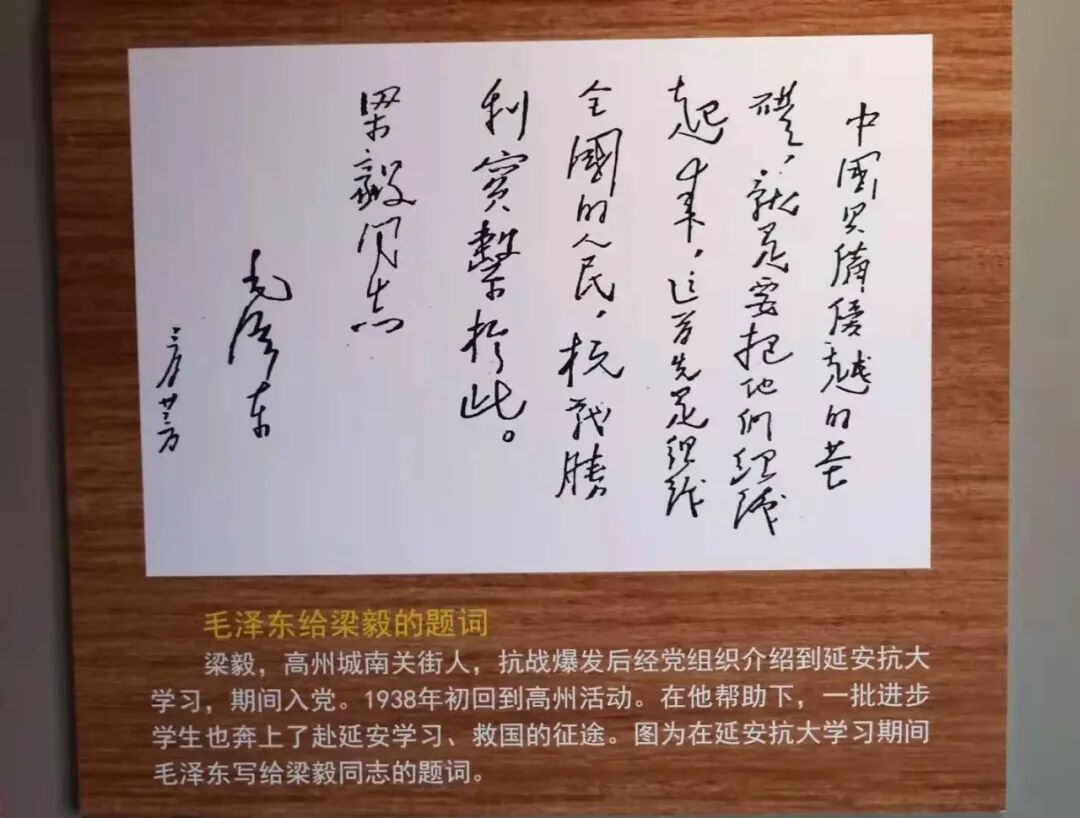 中国具備優越的基
礎，就是要把他們組織
起来，这首先是組織
全國的人民，抗战勝
利實繫於此。
梁毅同志
毛泽东
三月廿三日
毛泽东给梁毅的题词
梁毅，高州城南关街人，抗战爆发后经党组织介绍到延安抗大
学习，期间入党。1938年初回到高州活动。在他帮助下，一批进步
学生也奔上了赴延安学习、救国的征途。图为在延安抗大学习期间
毛泽东写给梁毅同志的题词。